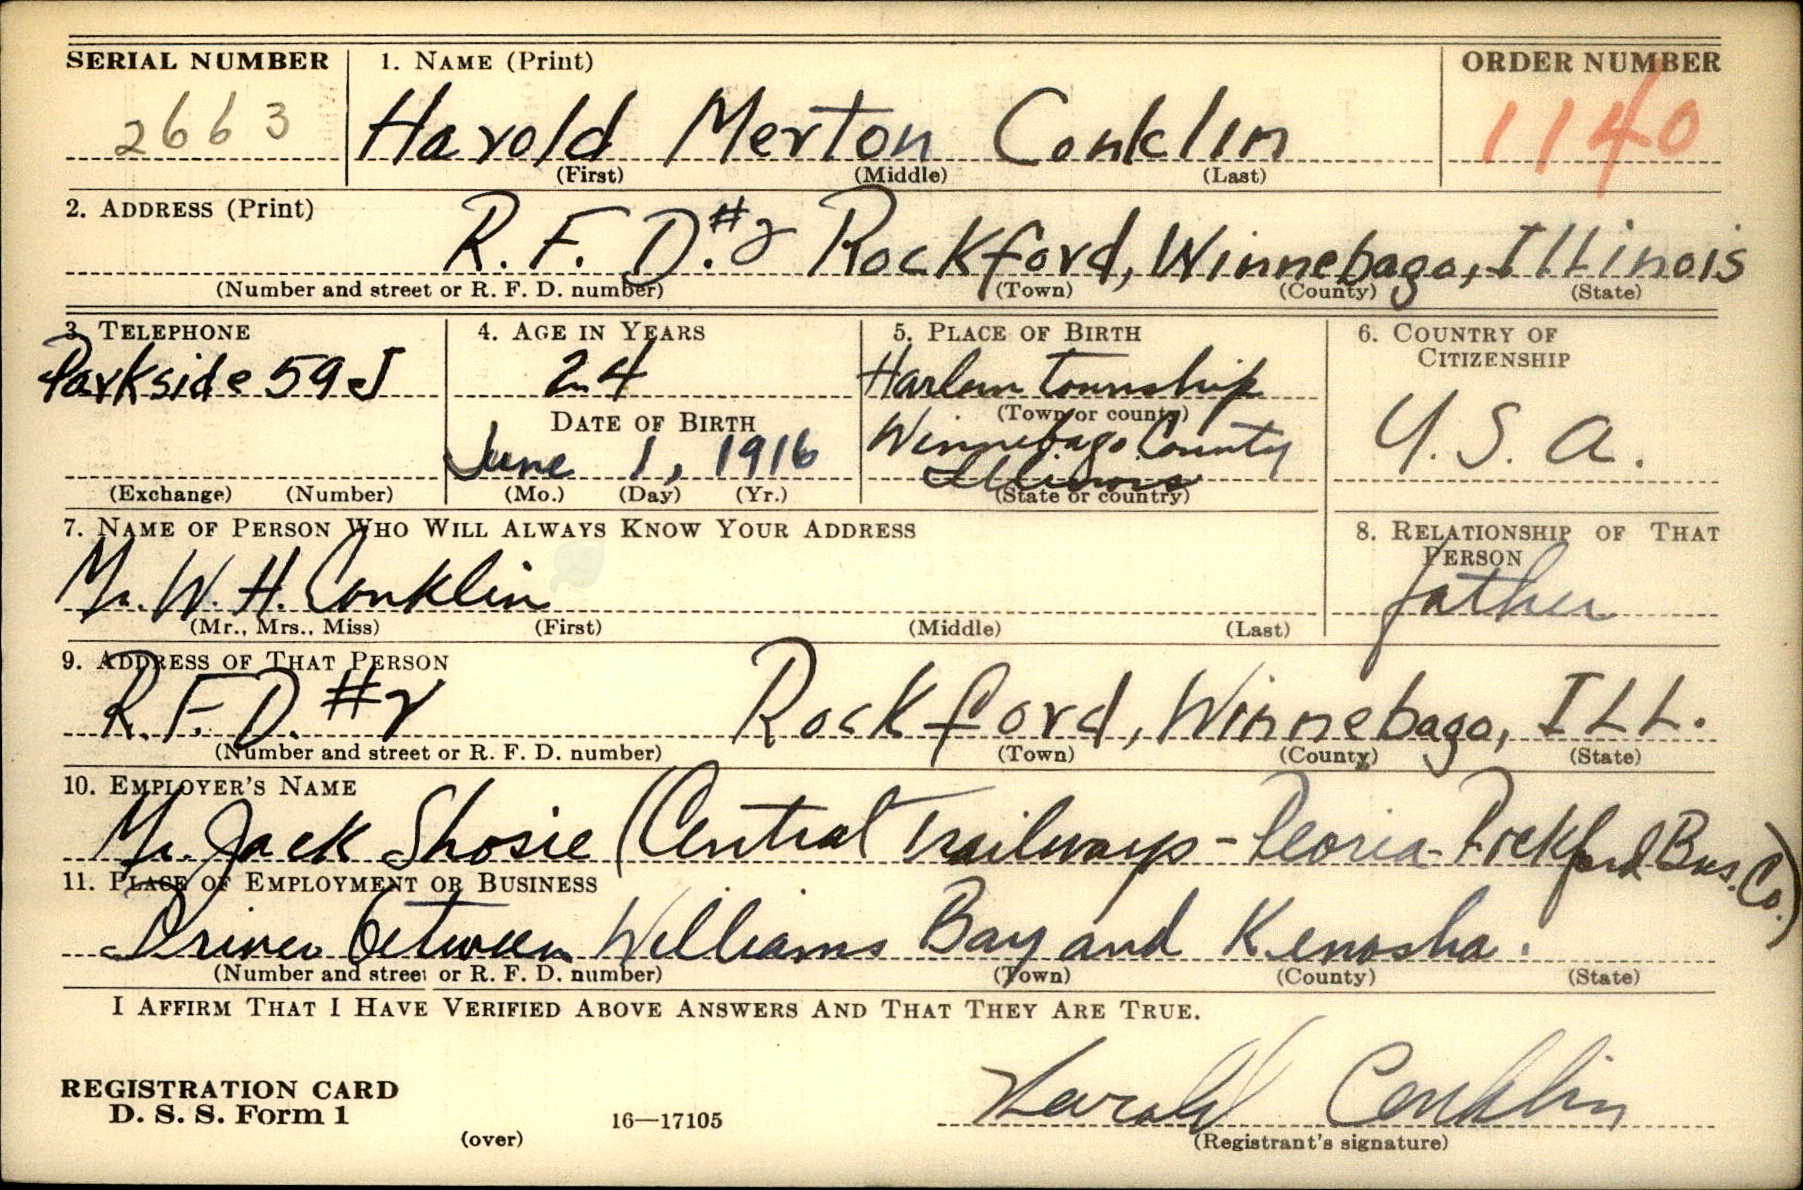 SERIAL NUMBER 1. NAME (Print) ORDER NUMBER
2663 Harold Merton Conklin 1140
(First) (Middle) (Last)
2. ADDRESS (Print)
R. F. D. #2 Rockford, Winnebago, Illinois
(Number and street or R. F. D. number) (Town) (County) (State)
3. TELEPHONE 4. AGE IN YEARS 5. PLACE OF BIRTH 6. COUNTRY OF
CITIZENSHIP
Parkside 59J 24 Harlem Township U. S. A.
(Town or county)
DATE OF BIRTH
June 1, 1916 Winnebago County
Illinois
(Exchange) (Number) (Mo.) (Day) (Yr.) (State or country)
7. NAME OF PERSON WHO WILL ALWAYS KNOW YOUR ADDRESS 8. RELATIONSHIP OF THAT
PERSON
Mr. W. H. Conklin father
(Mr., Mrs., Miss) (First) (Middle) (Last)
9. ADDRESS OF THAT PERSON
R. F. D. #2 Rockford, Winnebago, ILL.
(Number and street or R. F. D. number) (Town) (County) (State)
10. EMPLOYER'S NAME
Mr. Jack Shosie (Central Trailways - Peoria - Rockford Bus. Co.)
11. PLACE OF EMPLOYMENT OR BUSINESS
Driver between Williams Bay and Kenosha.
(Number and street or R. F. D. number) (Town) (County) (State)
I AFFIRM THAT I HAVE VERIFIED ABOVE ANSWERS AND THAT THEY ARE TRUE.
Harold Conklin
REGISTRATION CARD
D. S. S. Form 1 16—17105
(over) (Registrant's signature)